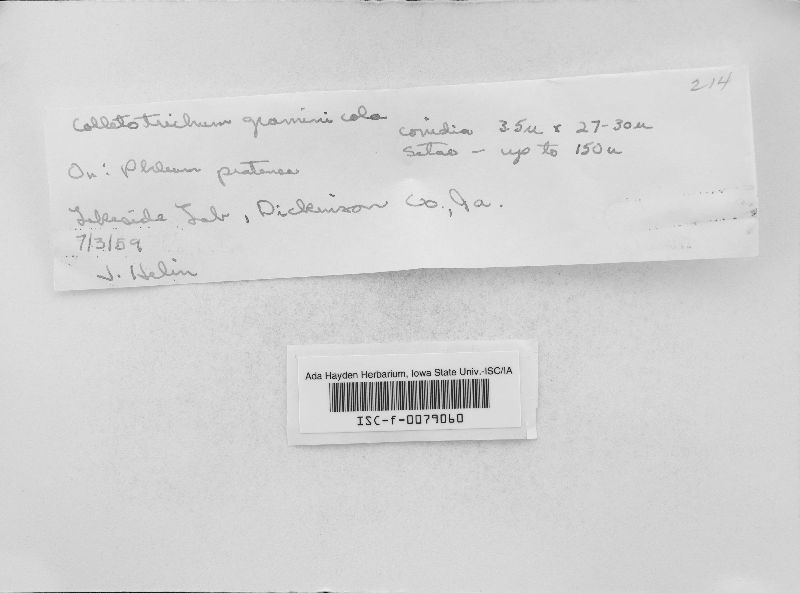 214
Colletotrichum graminicola
conidia 3.5u x 27-30u
setae - up to 150u
On: Phleum pratense
Lakeside Lab, Dickinson Co., Ia.
7/3/59
J. Helin
Ada Hayden Herbarium, Iowa State Univ.-ISC/IA
ISC-f-0079060